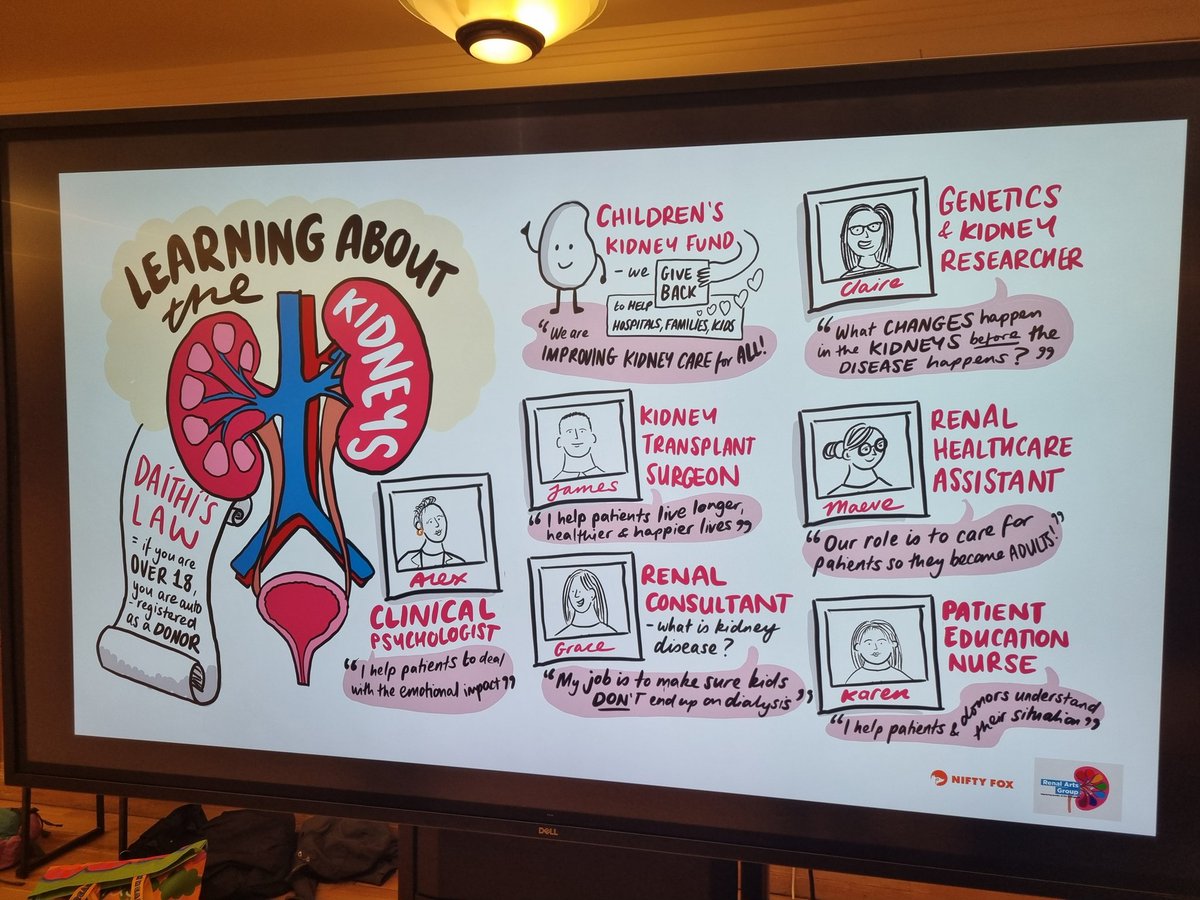 LEARNING ABOUT
the
KIDNEYS
DAÍTHÍ'S
LAW
= if you are
OVER 18,
you are auto
- registered
as a DONOR
Alex
CLINICAL
PSYCHOLOGIST
"I help patients to deal
with the emotional impact"
CHILDREN'S
KIDNEY FUND
- we GIVE
BACK
to HELP
HOSPITALS, FAMILIES, KIDS
"We are
IMPROVING KIDNEY CARE for ALL!
James
KIDNEY
TRANSPLANT
SURGEON
"I help patients live longer,
healthier & happier lives"
Grace
RENAL
CONSULTANT
- what is kidney
disease?
"My job is to make sure kids
DON'T end up on dialysis"
Claire
GENETICS
& KIDNEY
RESEARCHER
"What CHANGES happen
in the KIDNEYS before the
DISEASE happens?"
Maeve
RENAL
HEALTHCARE
ASSISTANT
"Our role is to care for
patients so they become ADULTS!"
Karen
PATIENT
EDUCATION
NURSE
"I help patients & donors understand
their situation"
NIFTY FOX
Renal Arts
Group
DELL